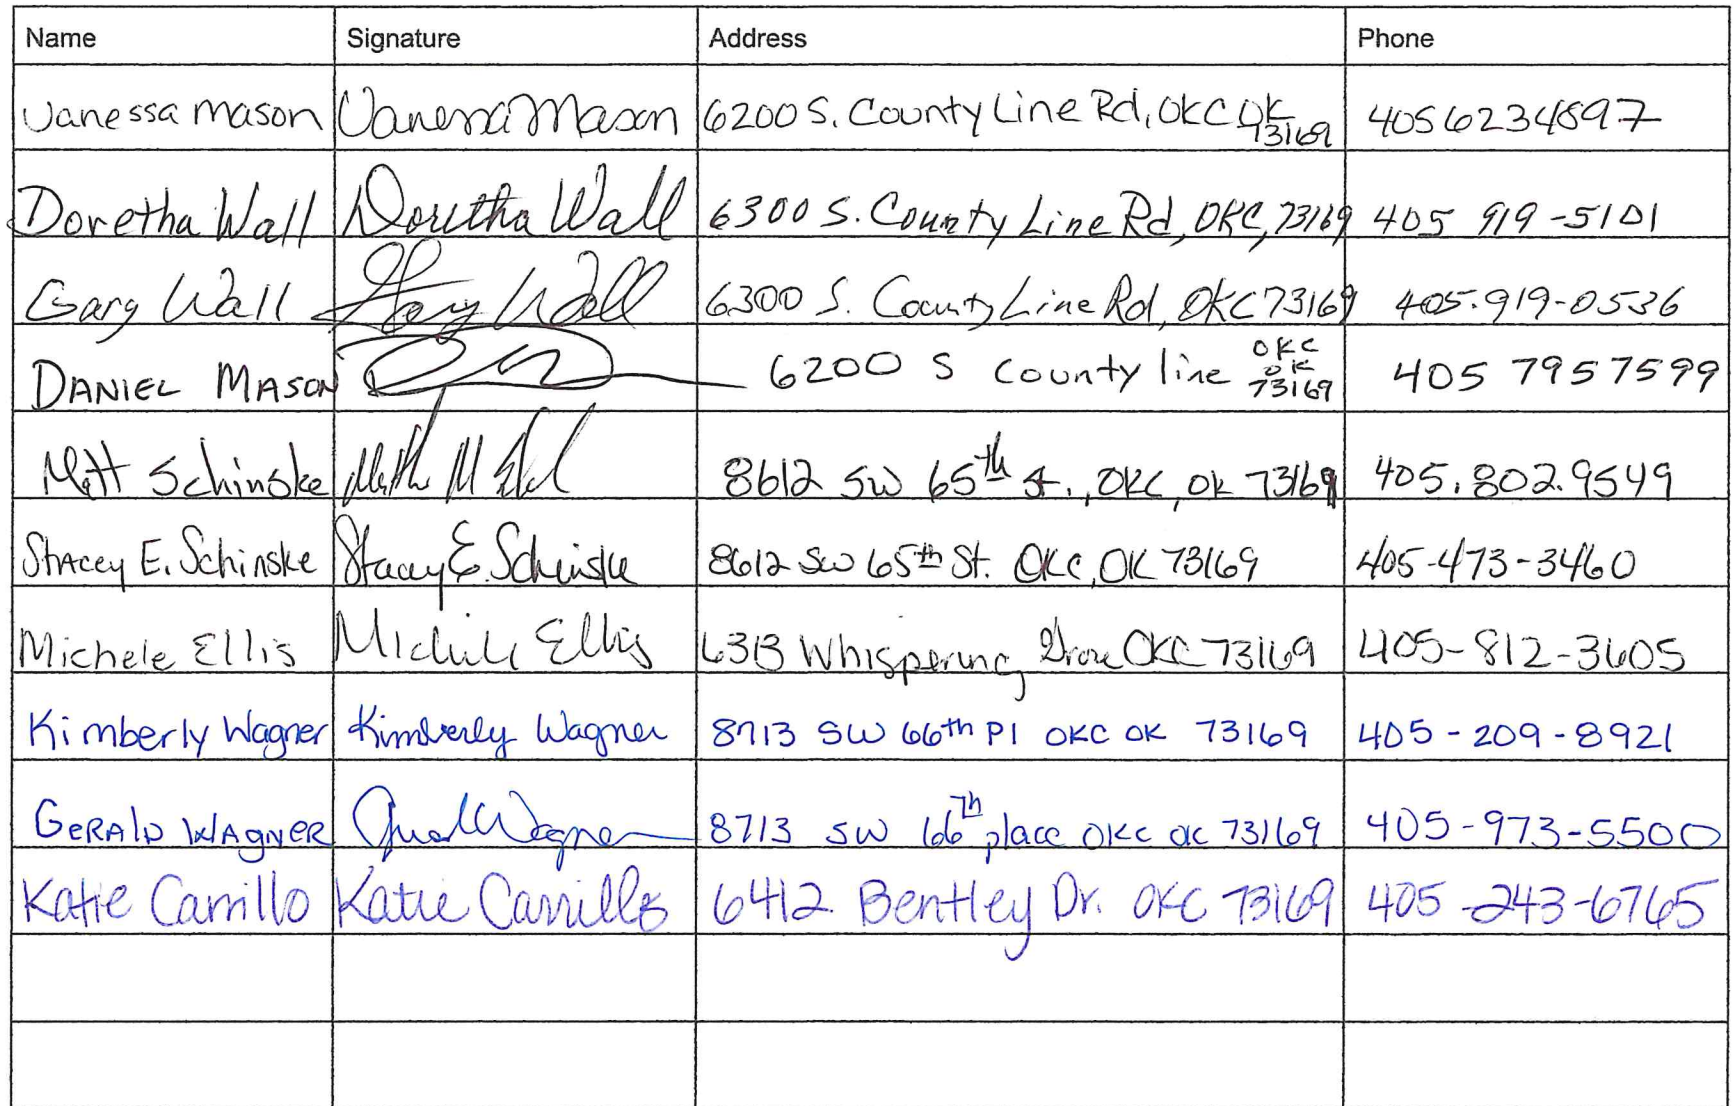 Name Signature Address Phone
Vanessa Mason Vanessa Mason 6200 S. County Line Rd, OKC OK 73169 4056234897
Doretha Wall Doretha Wall 6300 S. County Line Rd, OKC, 73169 405 919-5101
Gary Wall Gary Wall 6300 S. County Line Rd, OKC 73169 405.919-0536
DANIEL MASON 6200 S County line OKC OK 73169 405 7957599
Matt Schinske 8612 SW 65th St., OKC, OK 73169 405.802.9549
Stacey E. Schinske Stacey E. Schinske 8612 SW 65th St. OKC, OK 73169 405-473-3460
Michele Ellis Michele Ellis 6313 Whispering Grove OKC 73169 405-812-3605
Kimberly Wagner Kimberly Wagner 8713 SW 66th Pl OKC OK 73169 405-209-8921
GERALD WAGNER Gerald Wagner 8713 SW 66th place OKC OK 73169 405-973-5500
Katie Carrillo Katie Carrillo 6412 Bentley Dr. OKC 73169 405-243-6765